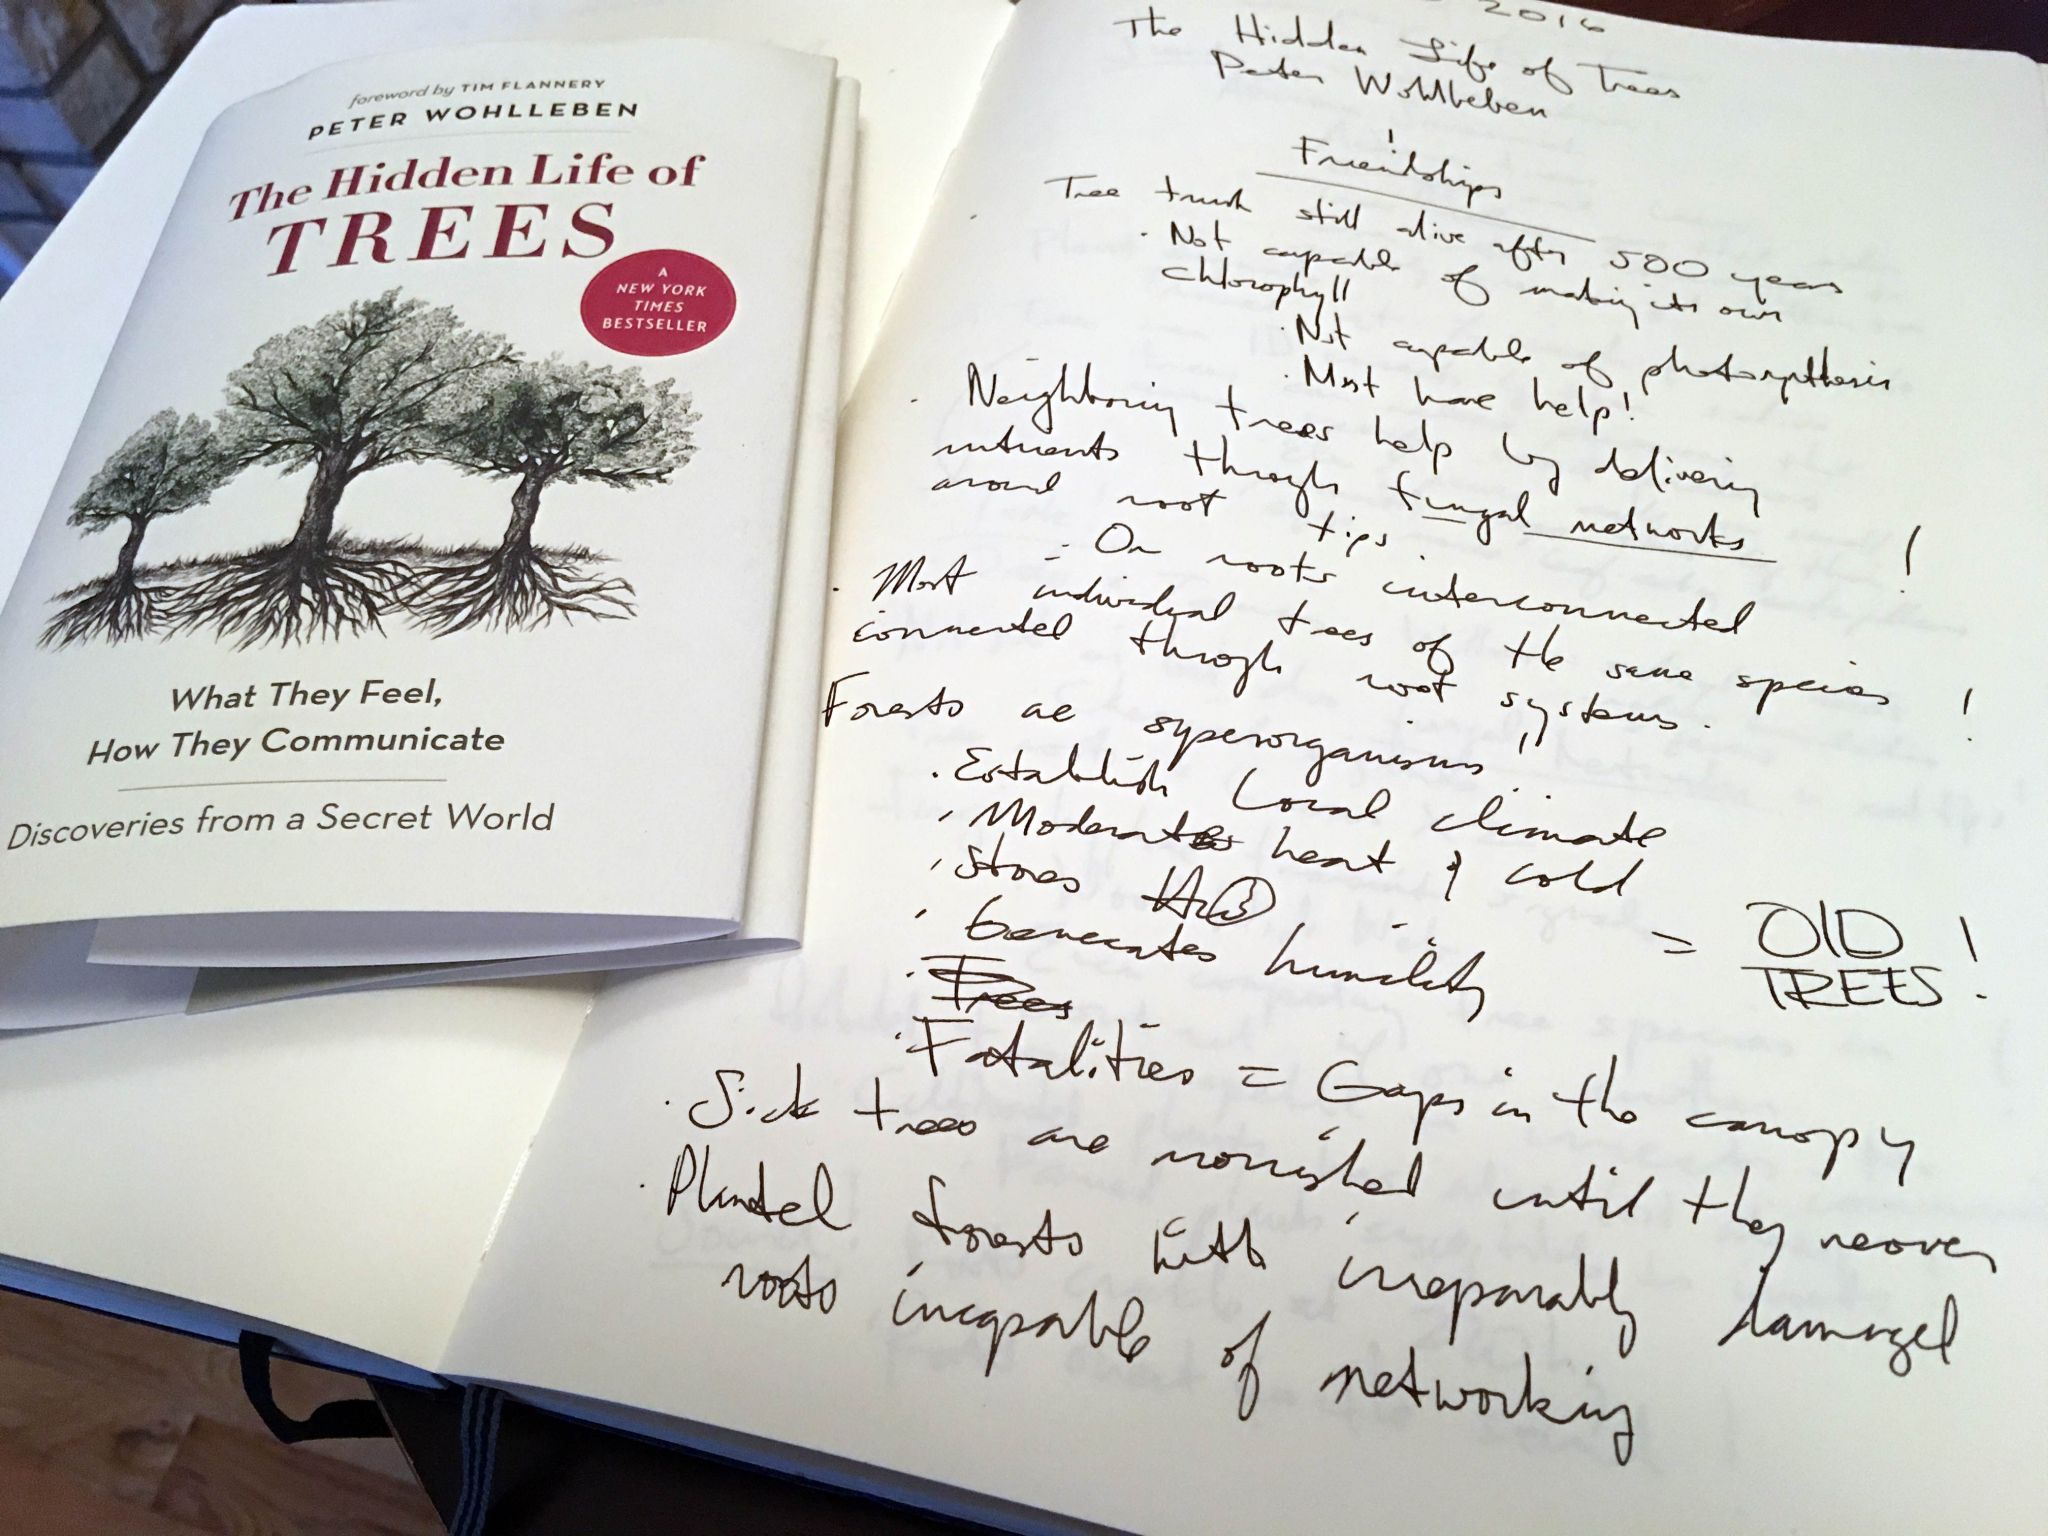 foreword by TIM FLANNERY
PETER WOHLLEBEN
The Hidden Life of
TREES
A
NEW YORK
TIMES
BESTSELLER
What They Feel,
How They Communicate
Discoveries from a Secret World
2016
The Hidden Life of Trees
Peter Wohlleben
Friendships
Tree trunk still alive after 500 years
· Not capable of making its own
chlorophyll
· Not capable of photosynthesis
· Must have help!
· Neighboring trees help by delivering
nutrients through fungal networks !
around root tips.
- Or roots interconnected
· Most individual trees of the same species !
connected through root systems.
Forests are superorganisms
· Establish local climate
· Moderates heat & cold
· Stores H2O
· Generates humidity = OLD
TREES!
· Trees
· Fatalities = Gaps in the canopy
· Sick trees are nourished until they recover
· Planted forests with irreparably damaged
roots incapable of networking